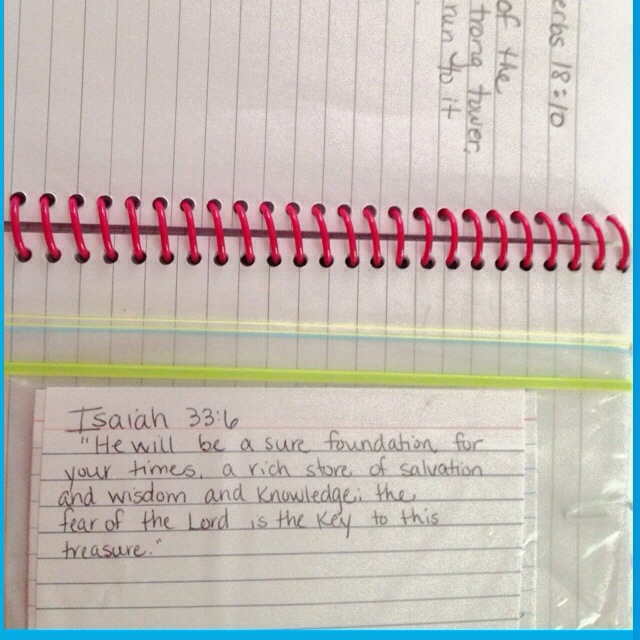 erbs 18:10
of the
trong tower,
run to it
Isaiah 33:6
"He will be a sure foundation for
your times, a rich store of salvation
and wisdom and knowledge; the
fear of the Lord is the key to this
treasure."